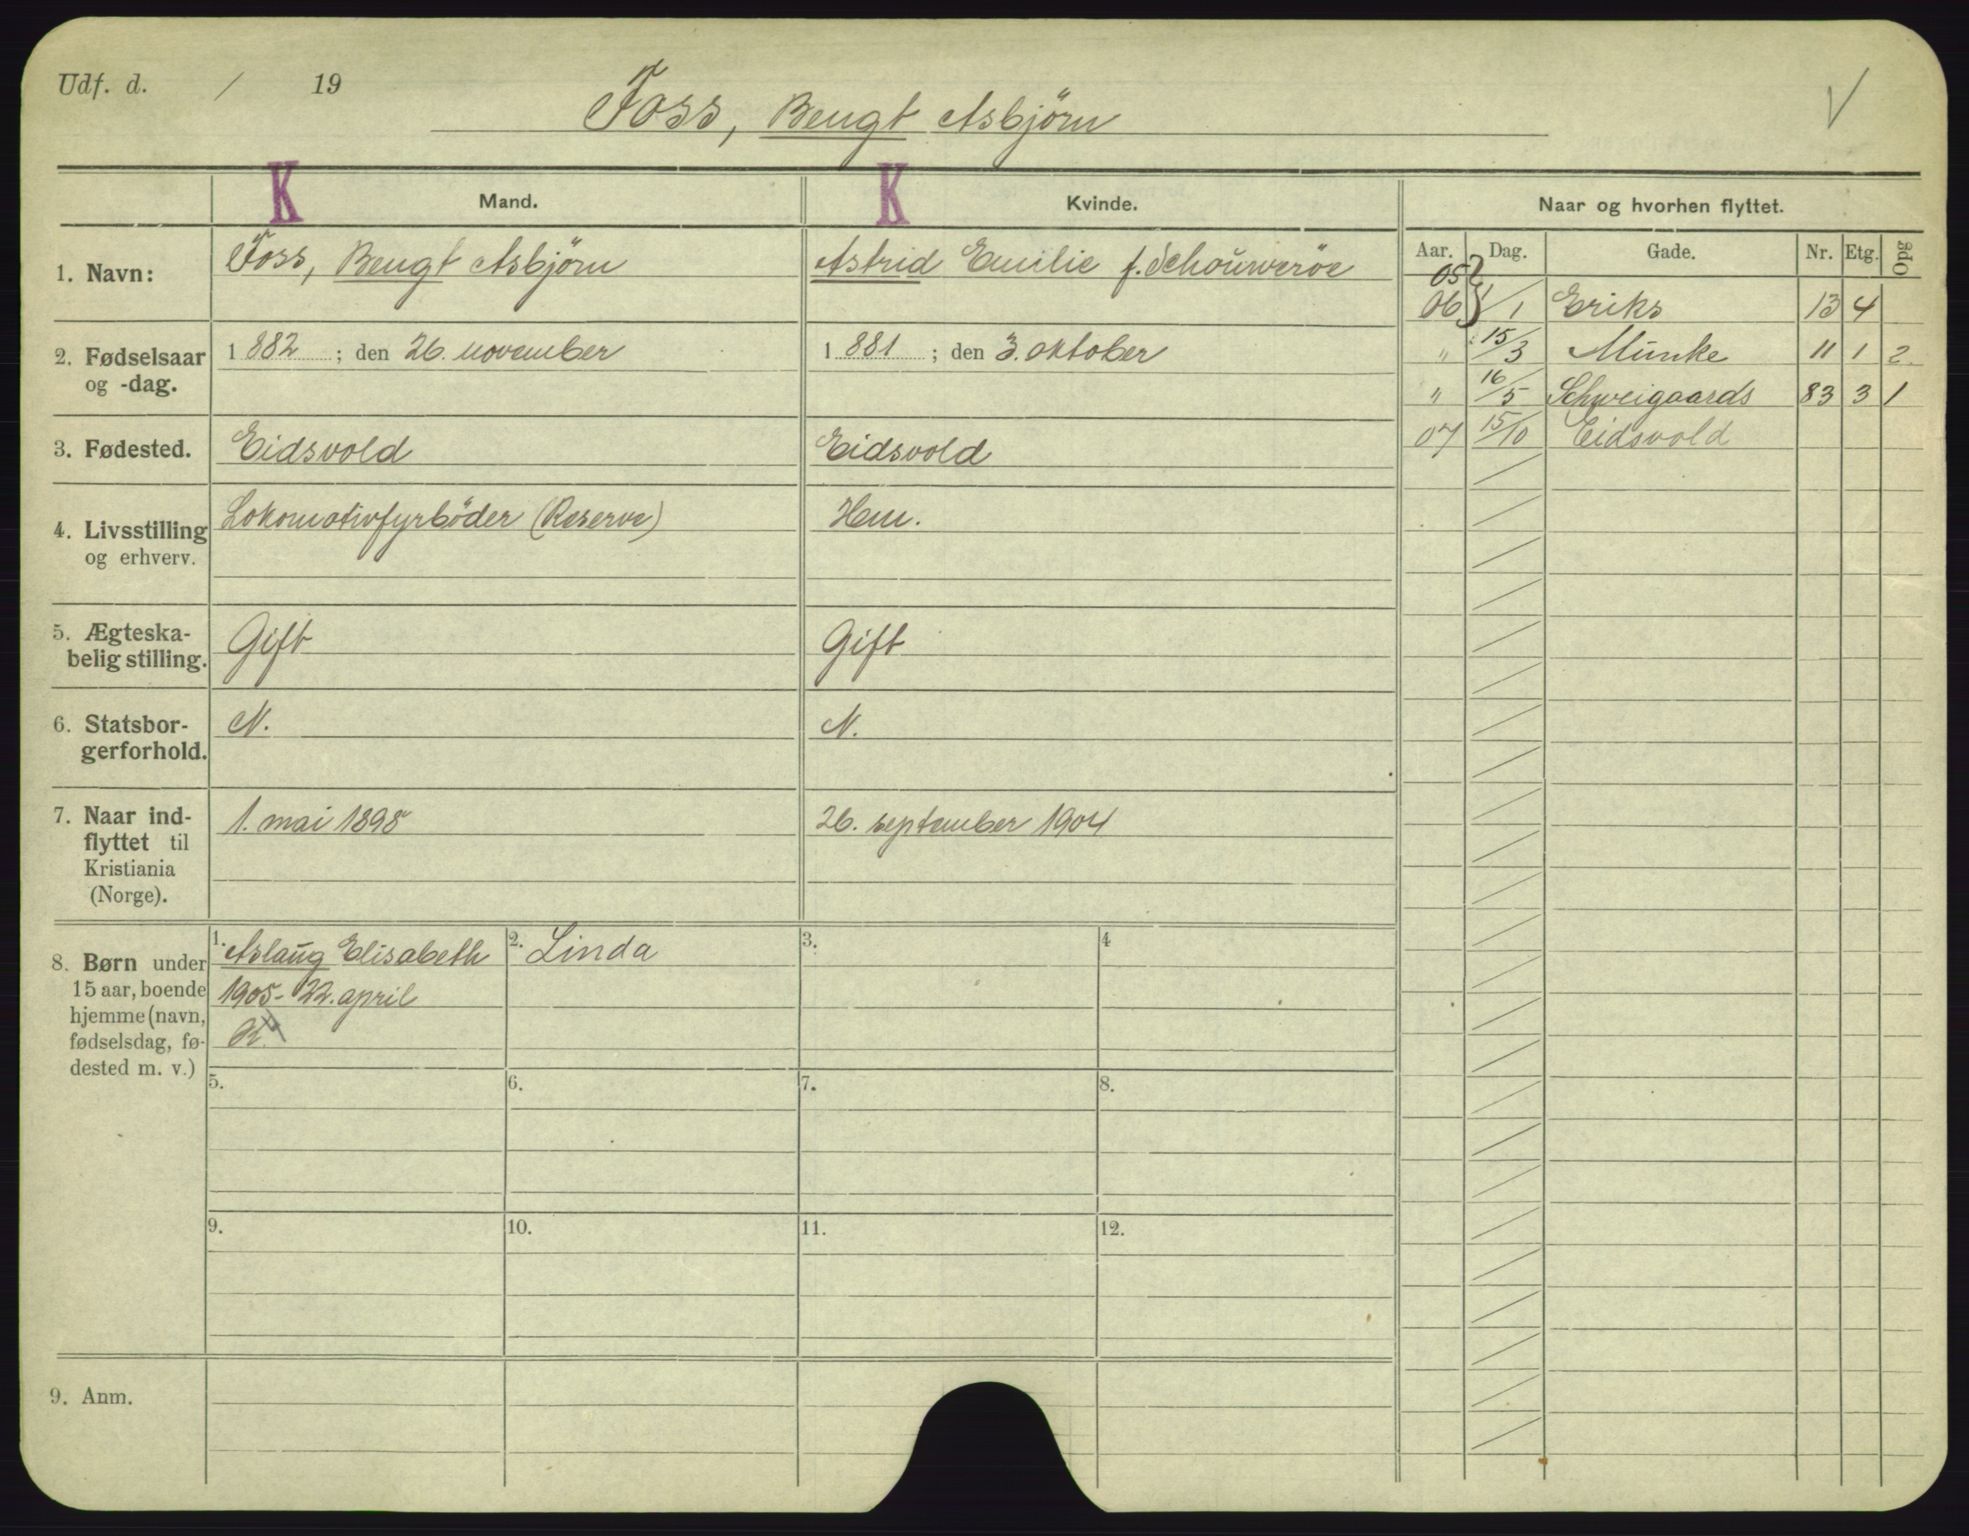 Udf. d. / 19
Foss, Bengt Asbjörn
K Mand.
K Kvinde.
Naar og hvorhen flyttet.
Aar. Dag. Gade. Nr. Etg. Opg
1. Navn: Foss, Bengt Asbjörn
Astrid Emilie f.
05
06 1/1 Eriks 13 4
" 15/3 Munke 11 1 2.
" 16/5 Schweigaards 83 3 1
07 15/10 Eidsvold
2. Fødselsaar
og -dag.
1882 ; den 26. november
1881 ; den 3. oktober
3. Fødested. Eidsvold
Eidsvold
4. Livsstilling
og erhverv.
Lokomotivfyrbøder (Reserve)
Hem.
5. Ægteska-
belig stilling.
Gift
Gift
6. Statsbor-
gerforhold.
N.
N.
7. Naar ind-
flyttet til
Kristiania
(Norge).
1. mai 1898
26. september 1904
8. Børn under
15 aar, boende
hjemme (navn,
fødselsdag, fø-
dested m. v.)
1. Aslaug Elisabeth
1905 - 22. april
2. Linda
3.
4
5.
6.
7.
8.
9.
10.
11.
12.
9. Anm.